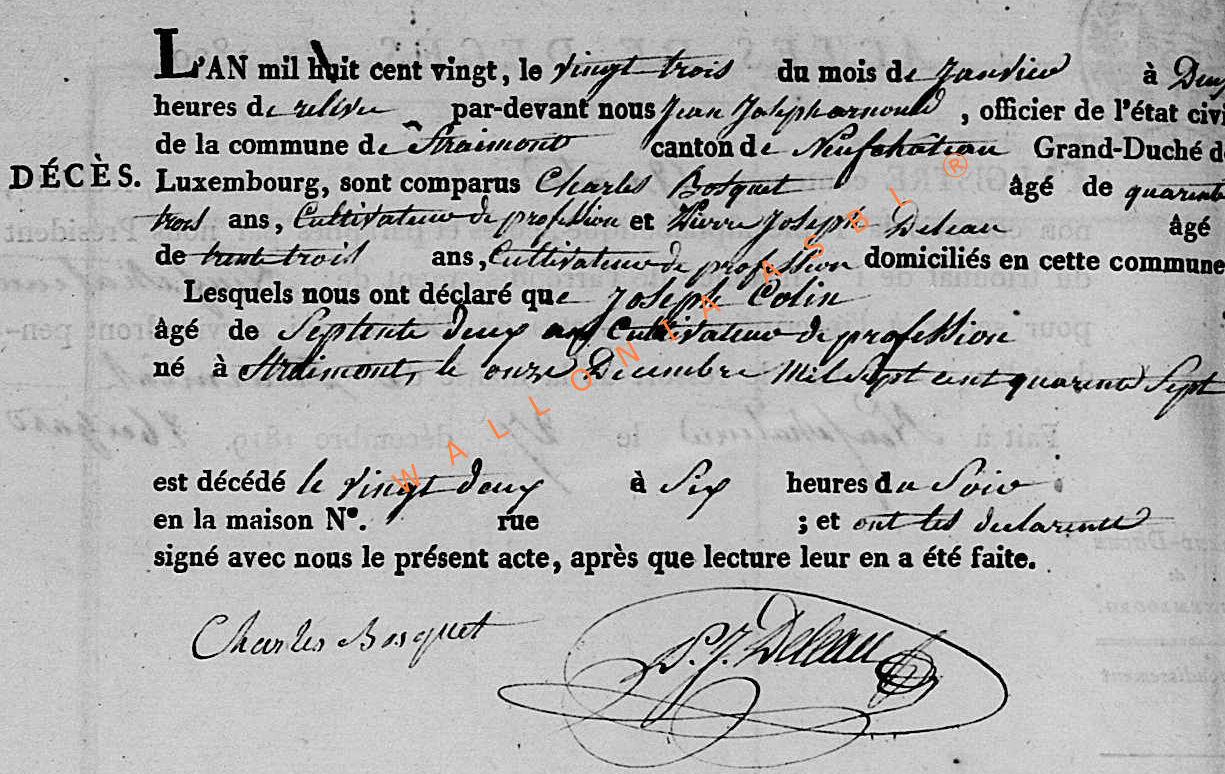 L'AN mil huit cent vingt, le vingt trois du mois de Janvier à Deux
heures de relevée par-devant nous Jean Joseph arnould, officier de l'état civi
de la commune de Straimont canton de Neufchateau Grand-Duché de
DÉCÈS. Luxembourg, sont comparus Charles Bosquet âgé de quarent
trois ans, Cultivateur de profession et Pierre Joseph Deleau âgé
de trente trois ans, Cultivateur de profession domiciliés en cette commune
Lesquels nous ont déclaré que Joseph Colin
âgé de Septente deux ans Cultivateur de profession
né à Straimont, le onze Decembre Mil Sept cent quarente Sept
est décédé le vingt deux à Six heures du Soir
en la maison N°. rue ; et ont les declarents
signé avec nous le présent acte, après que lecture leur en a été faite.
Charles Bosquet P. J. Deleau
WALLONIA ASBL ®